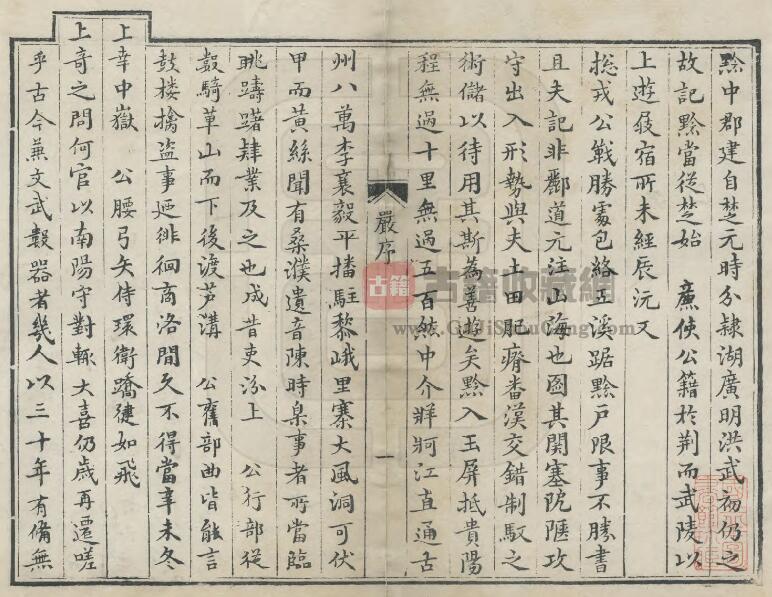 黔中郡建自楚元時分隸湖廣明洪武初仍之
故記黔當從楚始 廉使公籍於荆而武陵以
上遊屐宿所未經辰沅又
總戎公戰勝處包絡五溪踞黔戶限事不勝書
且夫記非酈道元注山海也圖其関塞阨隘攻
守出入形勢與夫土田肥瘠番漢交錯制馭之
術儲以待用其斯為善遊矣黔入玉屏抵貴陽
程無過十里無過五百然中介牂牁江直通古
嚴序
一
州八萬李襄毅平播駐黎峨里寨大風洞可伏
甲而黃絲聞有桑濮遺音陳時臬事者所當臨
眺躊躇肄業及之也成昔吏汾上 公行部從
數騎草山而下後渡芦溝 公舊部曲皆能言
鼓楼擒盜事遲徘徊商洛間久不得當辛未冬
上幸中嶽 公腰弓矢侍環衛蹻健如飛
上奇之問何官以南陽守對輒大喜仍歲再遷嗟
乎古今兼文武數器者幾人以三十年有備無
古籍 古籍收藏網
www.GuJiShouCang.com